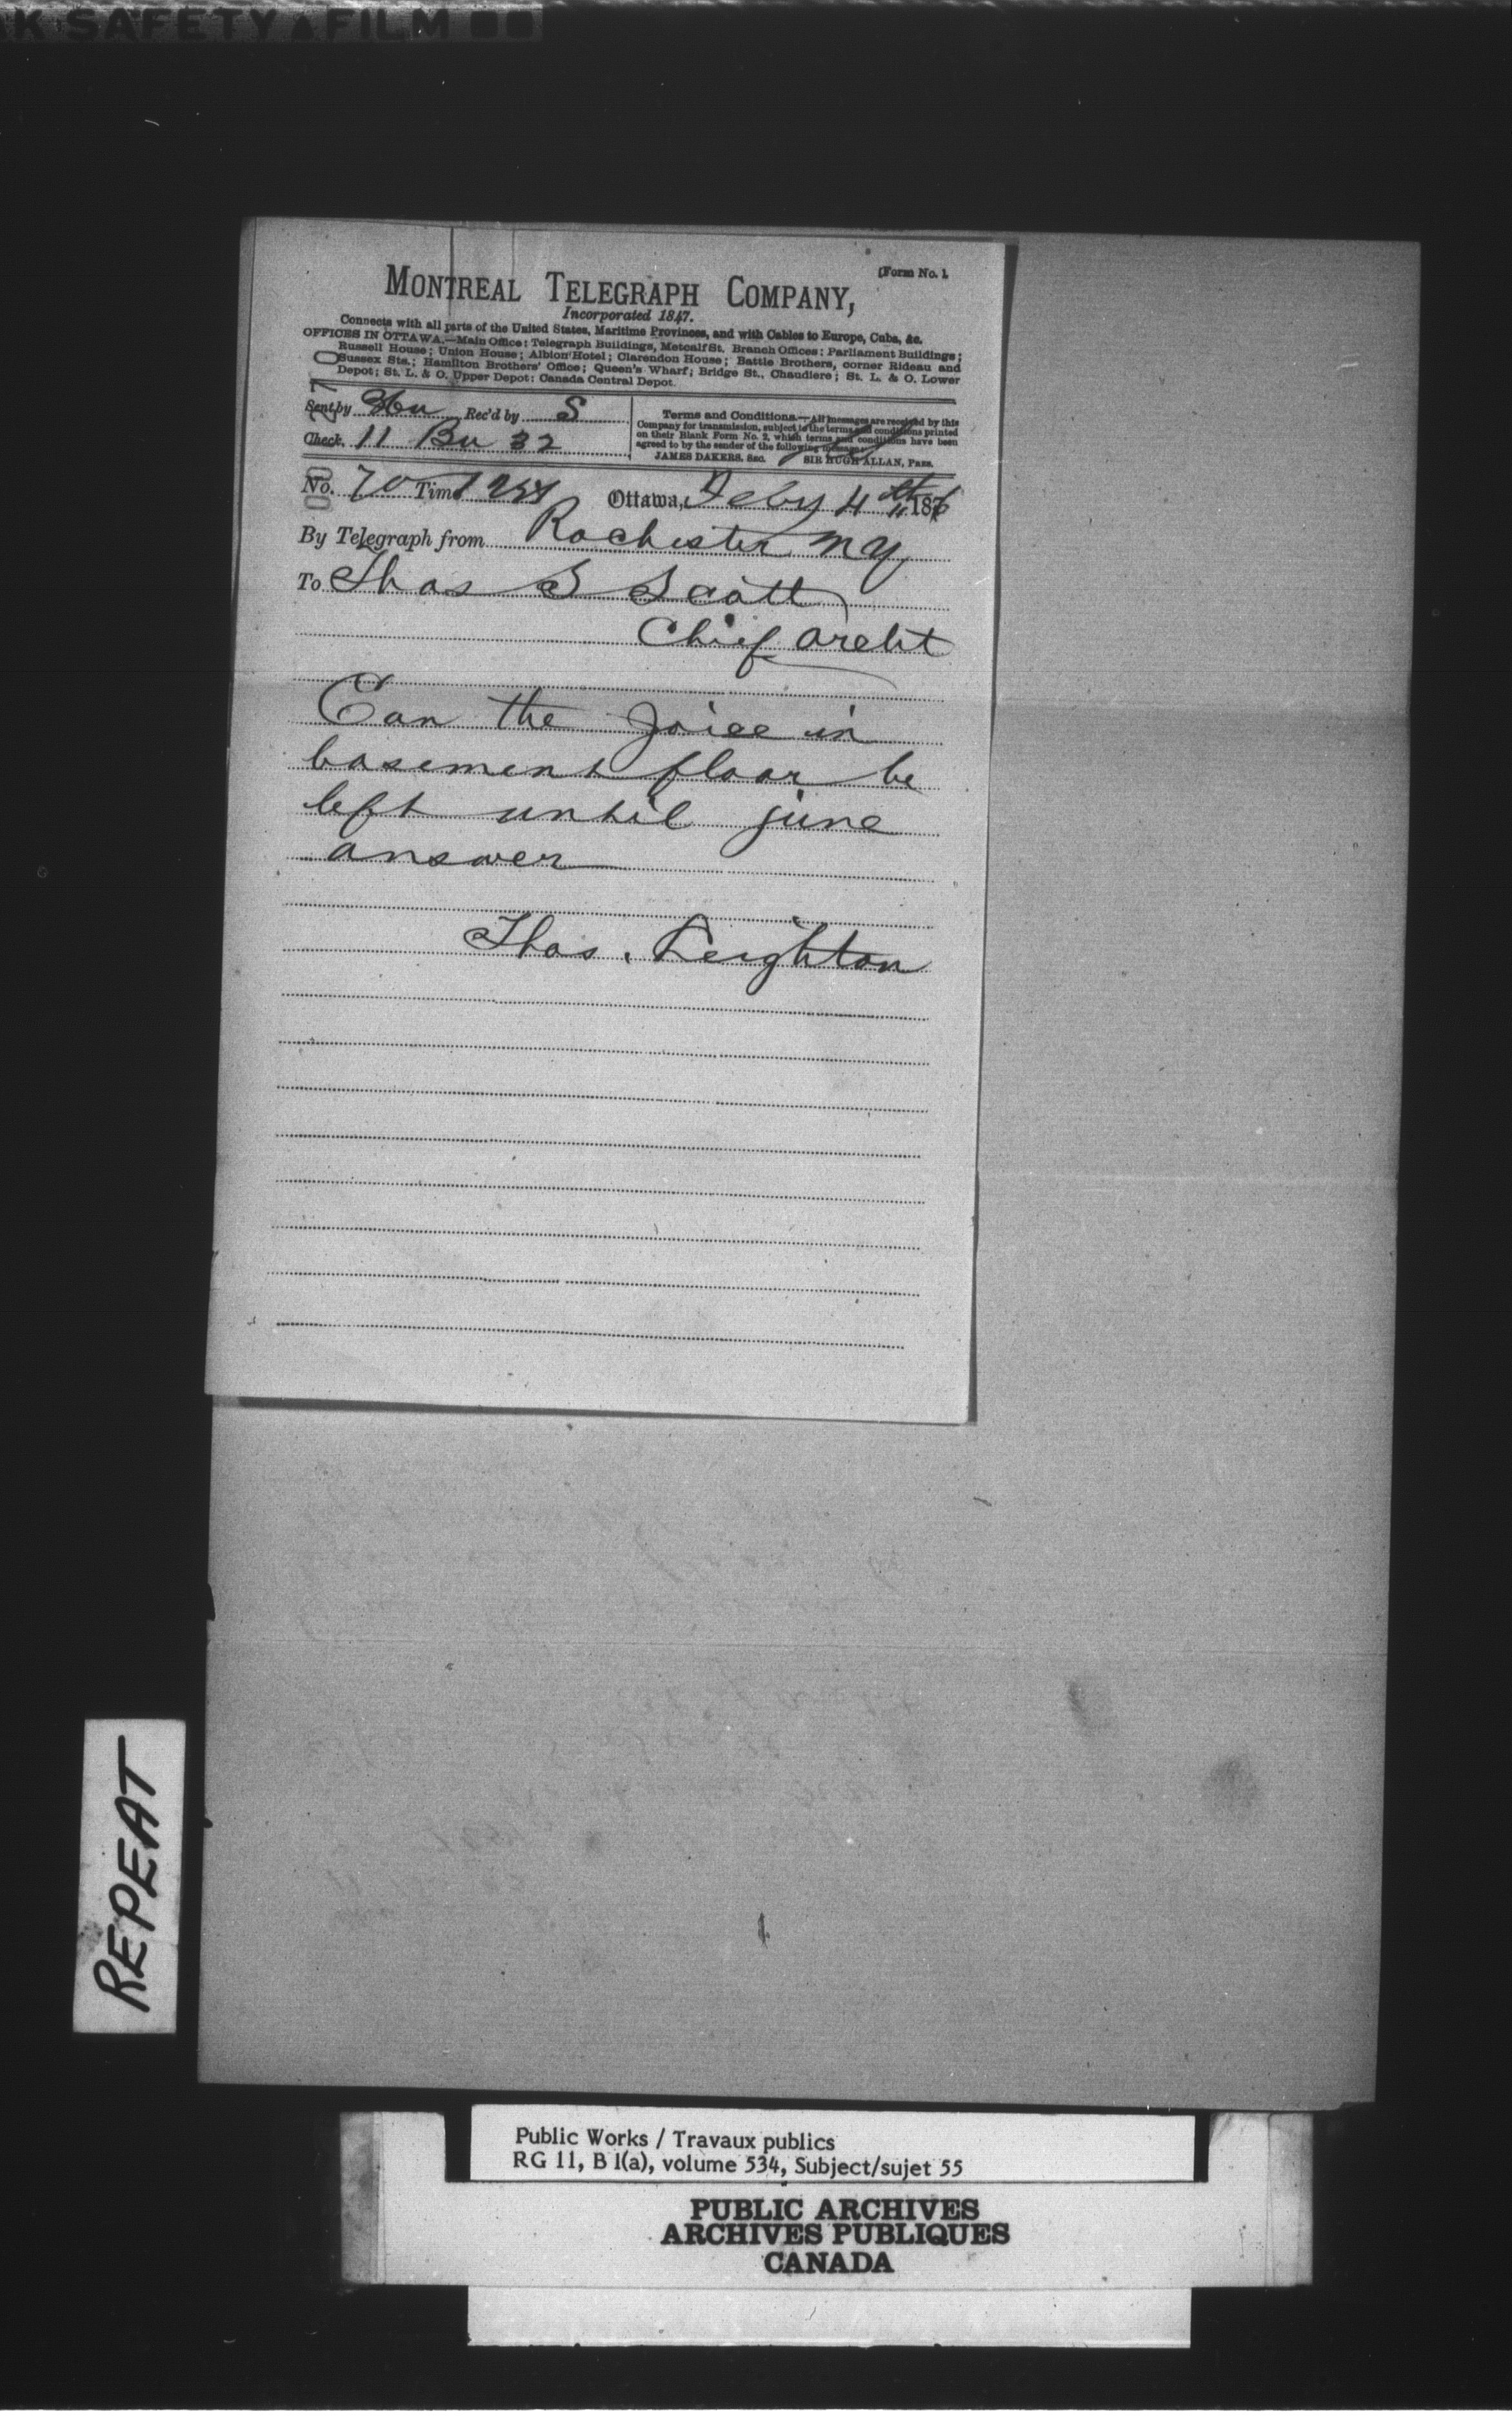 K SAFETY ▲ FILM ■■
(Form No. 1.
MONTREAL TELEGRAPH COMPANY,
Incorporated 1847.
Connects with all parts of the United States, Maritime Provinces, and with Cables to Europe, Cuba, &c.
OFFICES IN OTTAWA.—Main Office: Telegraph Buildings, Metcalf St. Branch Offices: Parliament Buildings;
Russell House; Union House; Albion Hotel; Clarendon House; Battle Brothers, corner Rideau and
Sussex Sts.; Hamilton Brothers' Office; Queen's Wharf; Bridge St., Chaudiere; St. L. & O. Lower
Depot; St. L. & O. Upper Depot: Canada Central Depot.
Sent by Rec'd by S
Check. 11 Bu 32
Terms and Conditions.—All messages are received by this
Company for transmission, subject to the terms and conditions printed
on their Blank Form No. 2, which terms and conditions have been
agreed to by the sender of the following message.
JAMES DAKERS, Sec. SIR HUGH ALLAN, Pres.
No. 70 Time
Ottawa, Feby 4th 1876
By Telegraph from Rochester NY
To Thos S Scott
Chief archt
Can the Joice in
basement floor be
left until june
answer
Thos. Leighton
REPEAT
Public Works / Travaux publics
RG 11, B 1(a), volume 534, Subject/sujet 55
PUBLIC ARCHIVES
ARCHIVES PUBLIQUES
CANADA